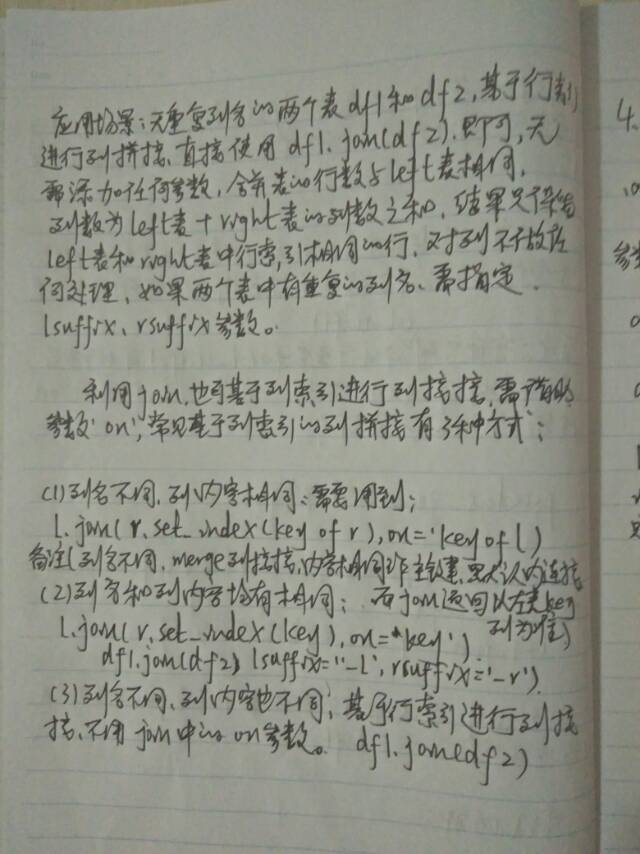 应用场景:无重复列名的两个表df1和df2,基于行索引
进行列拼接,直接使用 df1.join(df2).即可,无
需添加任何参数,合并表的行数与left表相同,
列数为left表+right表的列数之和,结果只保留
left表和right表中行索引相同的行,对列不做任
何处理、如果两个表中有重复的列名、需指定
lsuffix、rsuffix参数。
利用join,也可基于列索引进行列拼接,需借助
参数'on',常见基于列索引的列拼接有3种方式:
(1)列名不同,列内容相同:需要用到:
l.join(r.set_index(key of r),on='key of l)
备注(列名不同,merge列拼接,内容相同作主键,默认内连接
(2)列名和列内容均有相同: 而join返回以左表key
列为准)
l.join(r.set_index(key),on='key')
df1.join(df2, lsuffix='_l', rsuffix='_r')
(3)列名不同、列内容也不同:基于行索引进行列拼
接、不用join中的on参数。 df1.join(df2)
4.
参数